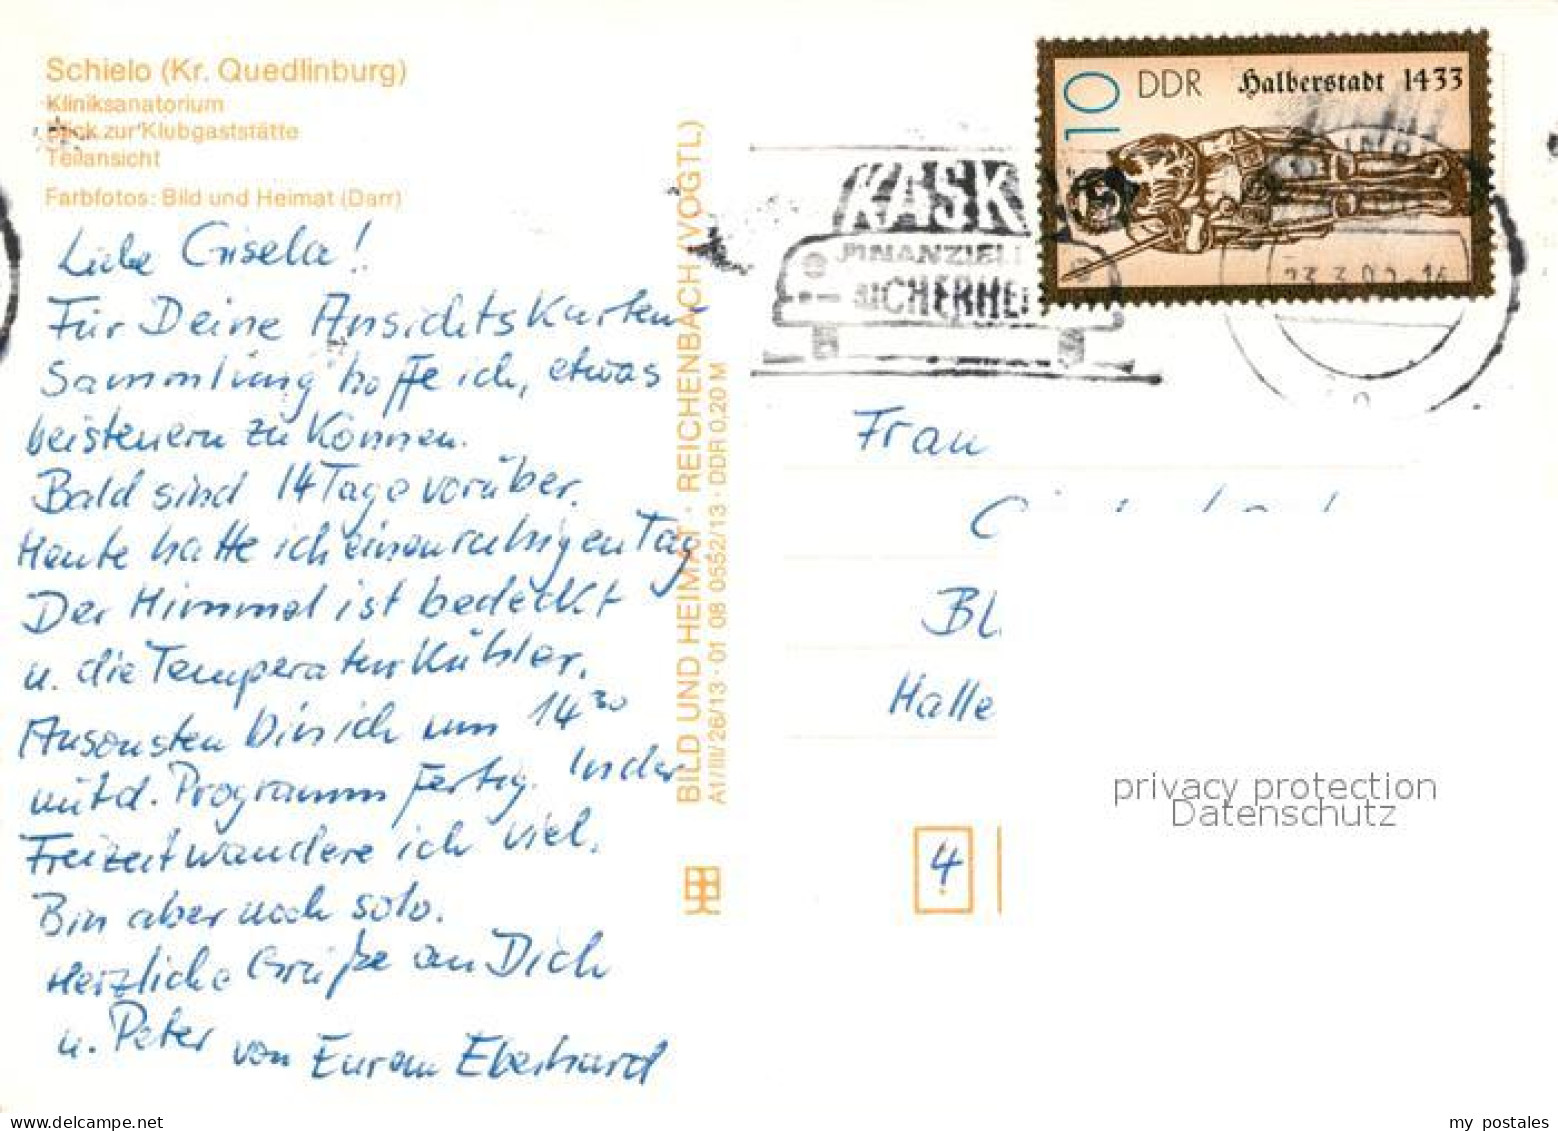 Schielo (Kr. Quedlinburg)
Kliniksanatorium
Blick zur Klubgaststätte
Teilansicht
Farbfotos: Bild und Heimat (Darr)
Liebe Gisela!
Für Deine Ansichtskarten-
Sammlung hoffe ich, etwas
beisteuern zu können.
Bald sind 14 Tage vorüber.
Heute hatte ich einen ruhigen Tag
Der Himmel ist bedeckt
u. die Temperatur kühler.
Ansonsten bin ich um 14³⁰
mit d. Programm fertig. In der
Freizeit wandere ich viel.
Bin aber noch solo.
Herzliche Grüße an Dich
u. Peter von Eurem Eberhard
BILD UND HEIMAT · REICHENBACH (VOGTL)
A1/III/26/13 · 01 08 0552/13 · DDR 0,20 M
10 DDR Halberstadt 1433
KASK
FINANZIELL
SICHERHEI
Frau
Halle
4
privacy protection
Datenschutz
my postales